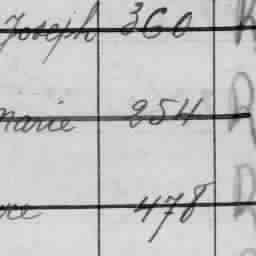 Joseph 360 R
Marie 254 R
478 R